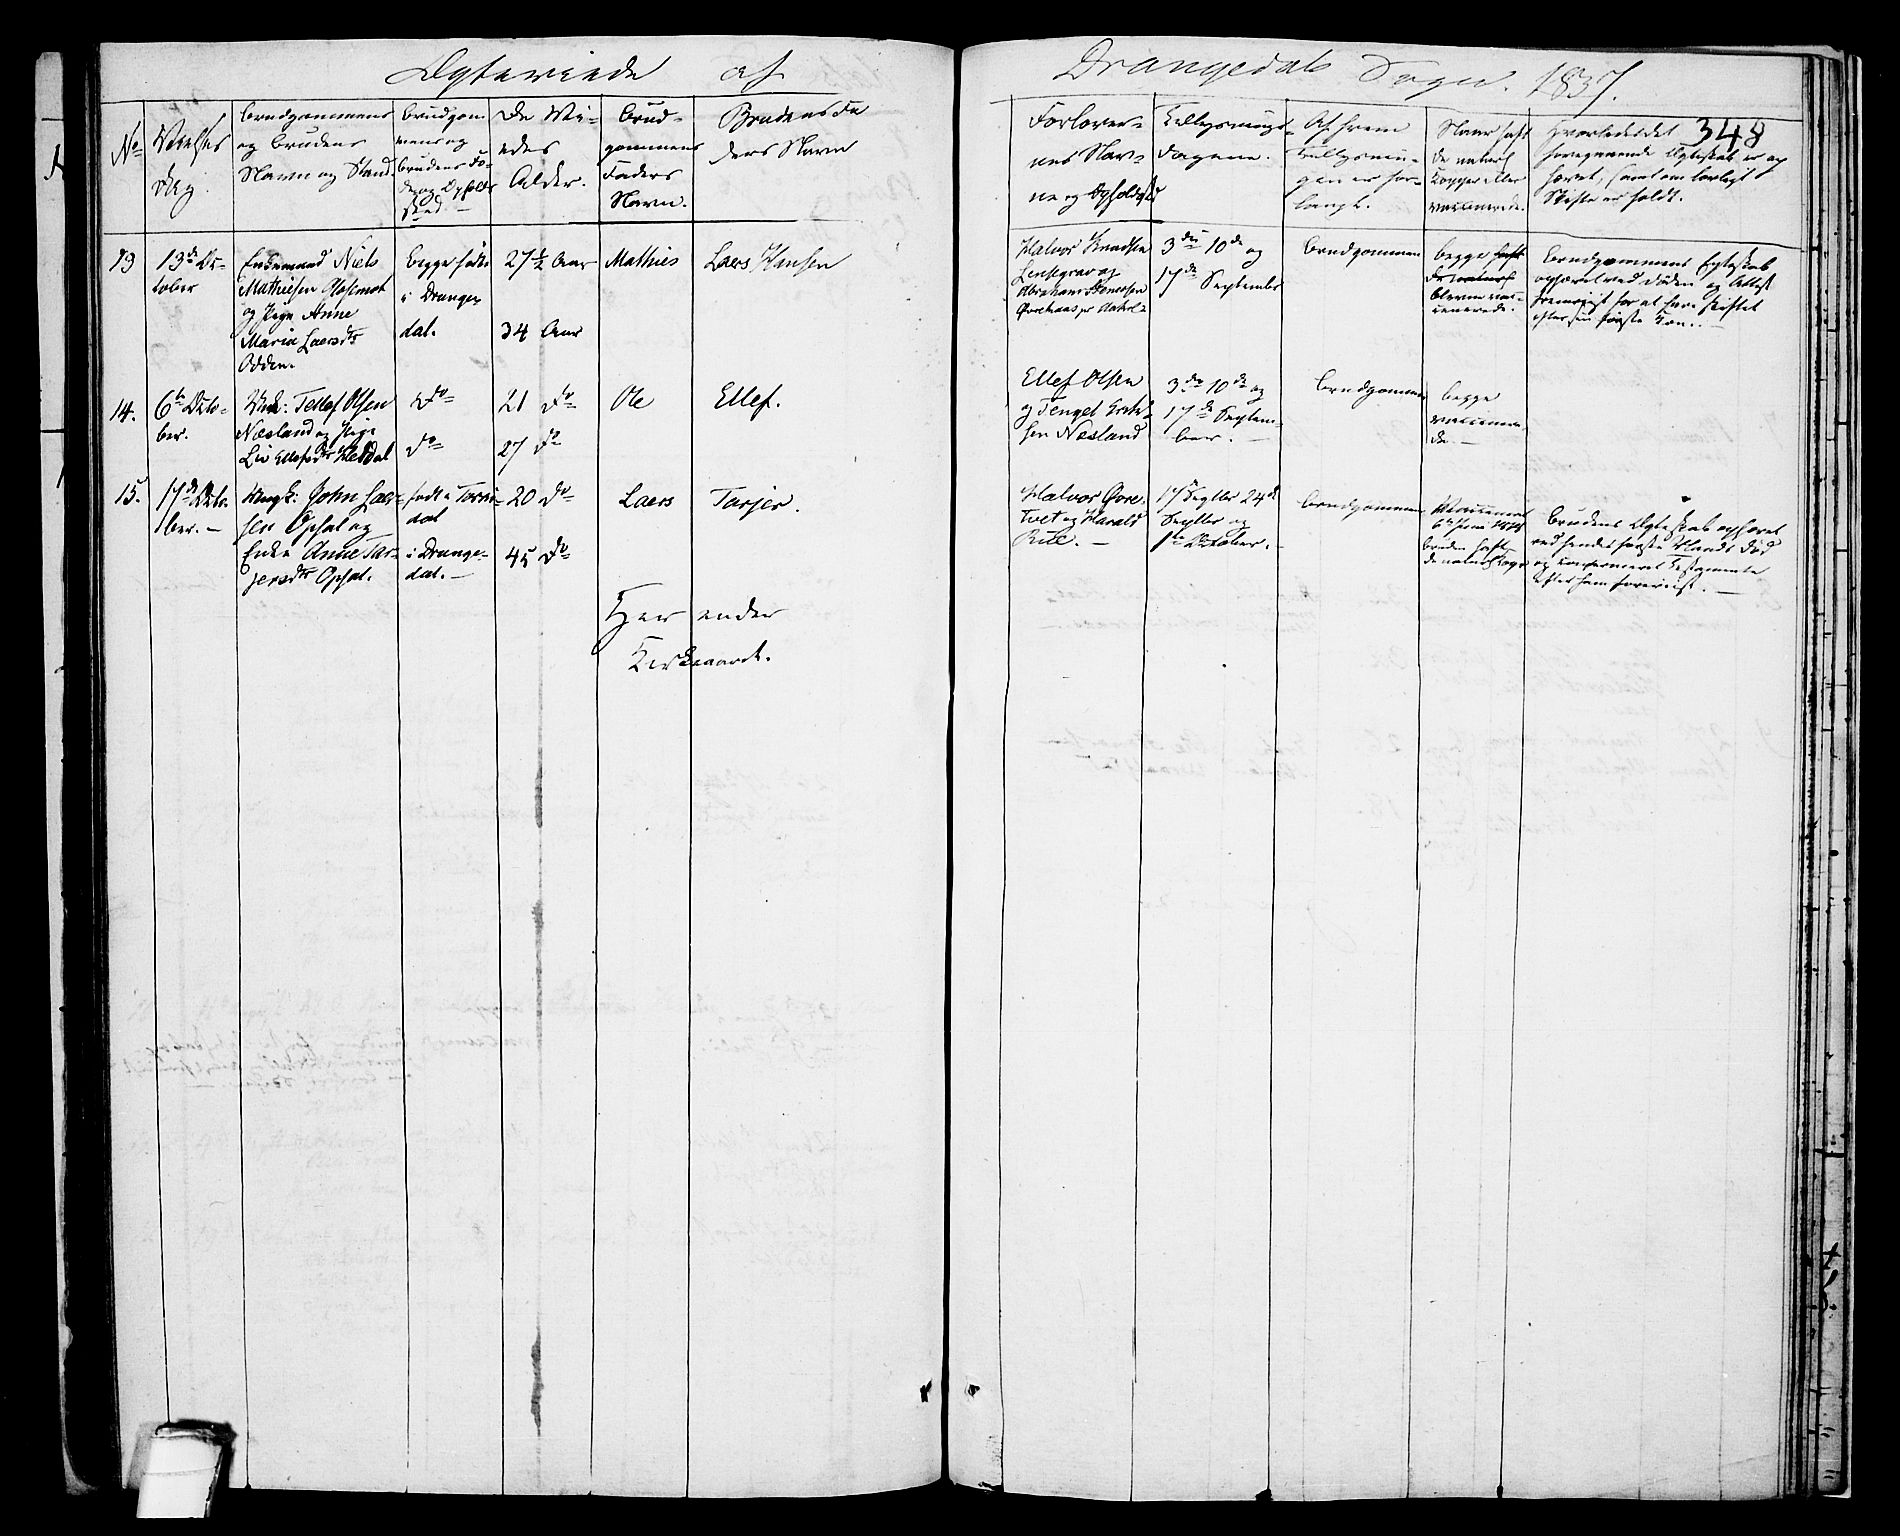 Ægteviede af Drangedals Sogn. 1837.
348
No
Vielses
Dag.
Brudgommens
og Brudens
Navn og Stand.
Brudgom
mens og
Brudens Fø-
de og Opholds
sted.
De Vi-
edes
Alder.
Brud-
gommens
Faders
Navn.
Brudens Fa
ders Navn
Forlover-
nes Nav-
ne og Opholdsted
Tillysnings-
dagene.
Af hvem
Tillysnin-
gen er for-
langt.
Naar havt
de naturl
Kopper eller
vaccinerede.
Hvorledes det
foregaaende Ægteskab er op
hævet, samt om lovligt
Skifte er holdt.
13
13de Oc-
tober
Enkemand Niels
Mathiesen
og Pige Anne
Maria Laersdr
Odden.
begge fødte
i Drange
dal.
27 1/2 Aar
34 Aar
Mathies
Laers Hansen
Halvor Knudsen
Lensegrav og
Abraham
3die 10de og
17de September
Brudgommen
begge havt
de naturl
blevne vac-
cinerede.
Brudgommens Egteskab
ophævet ved Døden og Attest
fremviist for at have skiftet
efter sin første Kone.
14.
6te Octo-
ber.
Ungk: Tellef Olsen
Næsland og Pige
Liv Ellefsdr Heldal
do
do
21 do
27 do
Ole
Ellef.
Ellef Olsen
og Tengel
sen Næsland
3die 10de og
17de Septem-
ber.
Brudgommen
begge
vaccinere-
de.
15.
17de Octo-
ber.
Ungk: John Laer-
sen Opsal og
Enke Anne Tar-
jersdr Opsal.
født i Torris-
dal
i Drange-
dal.
20 do
45 do
Laers
Tarjer.
Halvor Gvre-
tvet og Harald
17de Septbr 24de
Septbr og
1ste October.
Brudgommen
Vaccineret
bruden havt
de naturl Kopper
Brudens Ægteskab ophævet
ved hendes første Mands Død
og confirmeret Testamente
efter ham foreviist.
Her ender
Kirkeaaret.